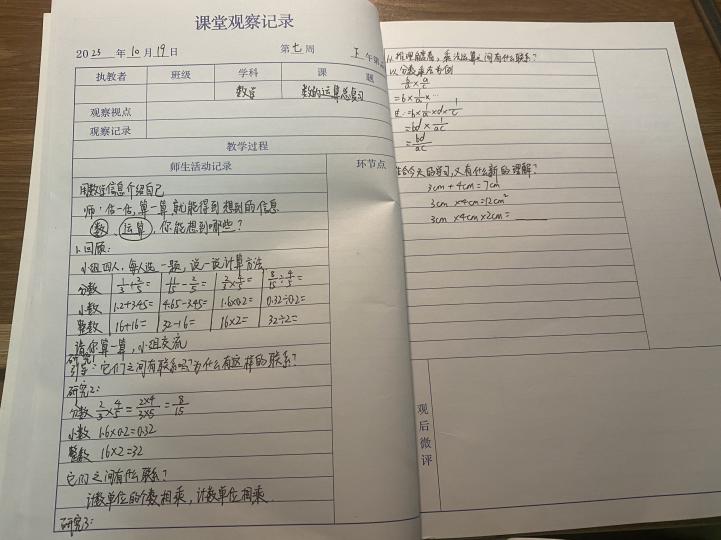 课堂观察记录
2023年10月19日 第七周 下午第
执教者 班级 学科 课题
数学 数的运算总复习
观察视点
观察记录
教学过程
师生活动记录 环节点
用数学信息介绍自己
师:估一估,算一算就能得到想到的信息
数、运算,你能想到哪些?
1.回顾:
小组四人,每人选一题,说一说计算方法
分数 1/3+2/5= 11/15-2/5= 2/3×4/5= 8/15÷4/5=
小数 1.2+3.45= 4.65-3.45= 1.6×0.2= 0.32÷0.2=
整数 16+16= 32-16= 16×2= 32÷2=
请你算一算,小组交流
研究1
引导:它们之间有联系吗?为什么有这样的联系?
研究2:
分数 2/3×4/5=2×4/3×5=8/15
小数 1.6×0.2=0.32
整数 16×2=32
它们之间有什么联系?
计数单位的个数相乘,计数单位相乘
研究3:
乘法运算之间有什么联系?
以分数乘法为例
b/a×d/c
=b×1/a×
=b×1/a×d×1/c
=bd×1/ac
=bd/ac
今天的学习,又有什么新的理解?
3cm+4cm=7cm
3cm×4cm=12cm²
3cm×4cm×2cm=
观后微评